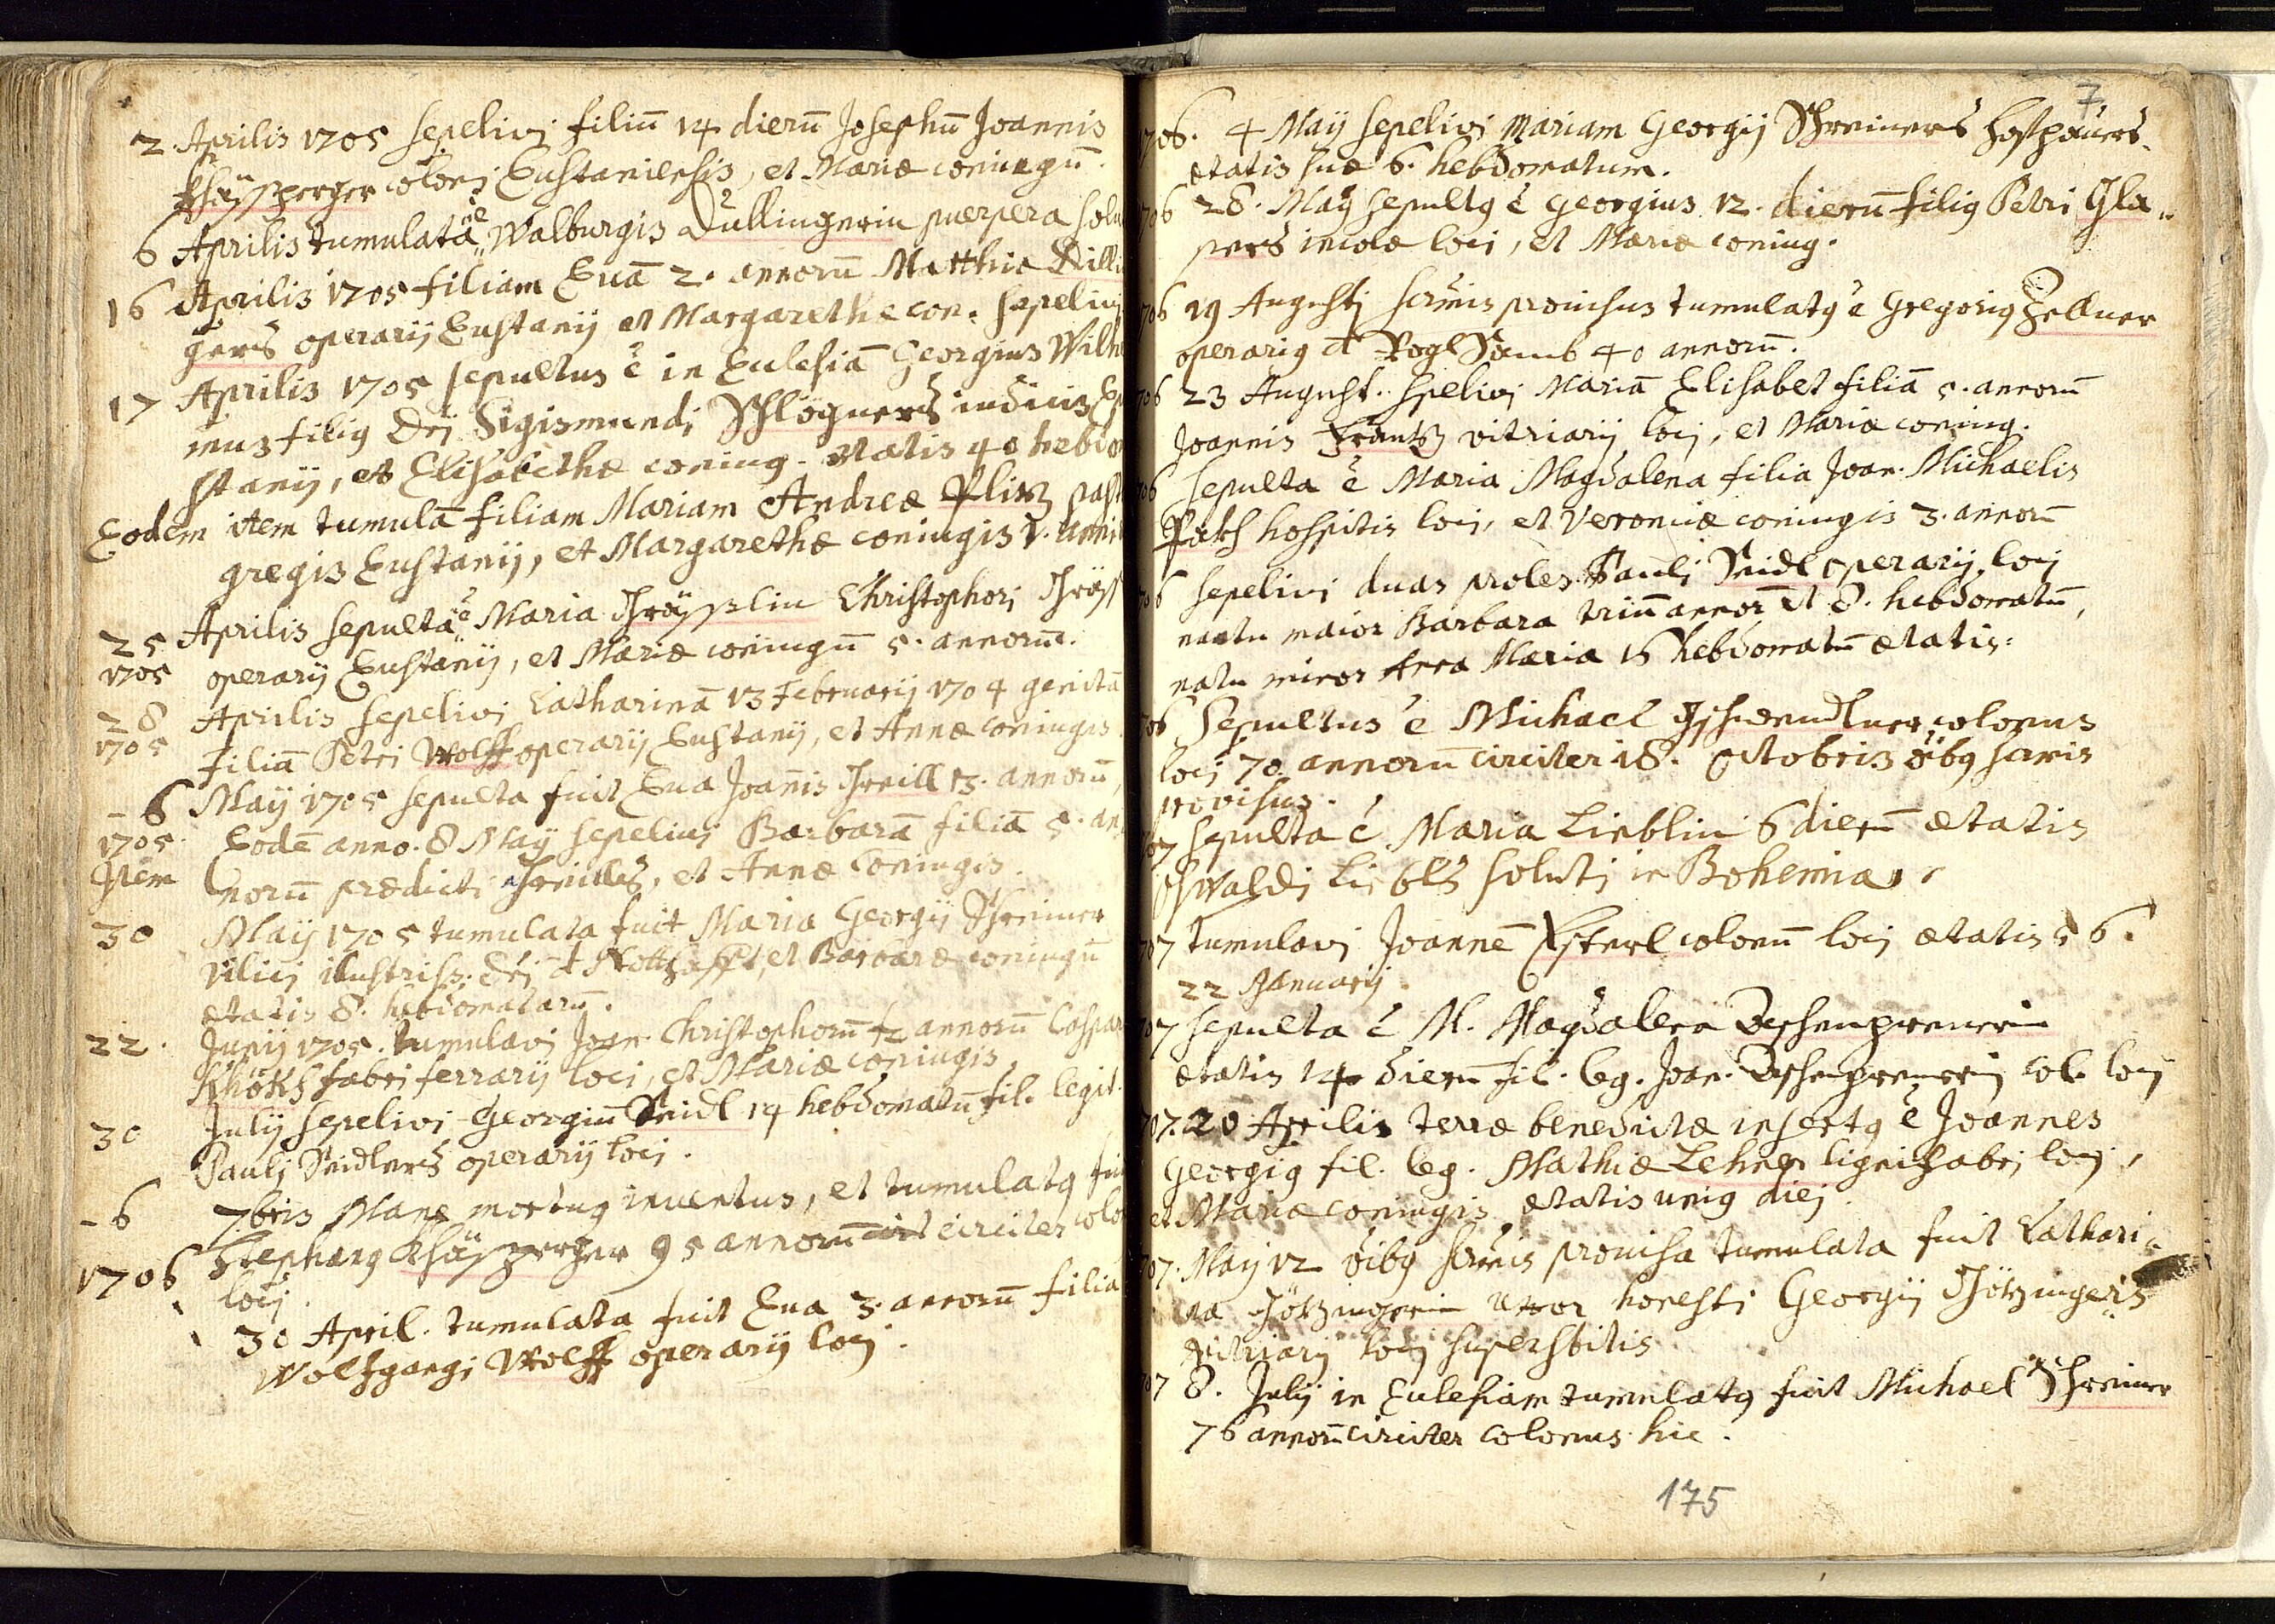 2. Aprilis 1705 sepelivi filiū 14 dierū Josephū Joannis
coloni Eustaniensis, et Mariæ coniugū.
6 Aprilis tumulata ē Walburgis Dullingerin puerpera
16 Aprilis 1705 filiam Euā 2. annorū Matthiæ Dilli
gers operarij Eustanij et Margarethæ con. sepelivi
17 Aprilis 1705 sepultus ē in Eulesiā Georgius Wilhe
mus filiq Dnj Sigismundi Schlögners iudicis Eu
stanij, et Elisabethæ coniug. ætatis 40 hebdo
Eodem item tumulā filiam Mariam Andreæ Plitz past
gregis Eustanij, et Margarethæ coniugis 1. anni
25 Aprilis sepulta ē Maria Christophori
1705 operarij Eustanij, et Mariæ coniugū 5. annorum.
28 Aprilis sepelivi Catharinā 13 Februarij 1704 genitā
1705 filiā Petri Wolff operarij Eustanij, et Annæ coniugis
- 6 Maÿ 1705 sepulta fuit Eua Joannis 13. annorū,
1705. Eodē anno. 8 Maÿ sepeliui Barbarā filiā 5. an
Item norū prædicti, et Annæ Coniugis.
30 Maÿ 1705 tumulata fuit Maria Georgij Schreiner
vilici illustriss: Dnj d Nothafft, et Barbaræ coniugū
ætatis 8. hebdomatarū.
22. Junij 1705. tumulavi Joan. Christophorū annorū Caspar
Khökhs fabri ferrarij loci, et Mariæ coniugis,
30 Julij sepelivi Georgiū Seidl 14 hebdomatū fil. legit.
Pauli Seidlers operarij loci.
- 6 7bris Mane mortuq inuentus, et tumulatq fui
Stephanq 95 annorū circiter colo
1706 loci.
30 April. tumulata fuit Eua 3. annorū filia
Wolfgangi Wolff operarij loci.
7
706. 4 Maÿ sepelivi Mariam Georgij Schreiners
ætatis suæ 6. hebdomatum.
706 28. Maÿ sepultq ē Georgius 12. dierū filiq Petri Gla-
sers incolæ loci, et Mariæ coniug.
706 19 Augusti provisus tumulatq ē Gregoriq Zellner
operariq 40 annorū.
706 23 August. spelivi Mariā Elisabet filiā 5. annorū
Joannis Frantz vitriarij loci, et Mariæ coniug.
706 sepulta ē Maria Magdalena filia Joan. Michaelis
hospitis loci, et Veronicæ coniugis 3. annorū
706 sepelivi duas proles Pauli Seidl operarij loci
natu maior Barbara triū annorū et 8. hebdomatū,
natu minor Anna Maria 16 hebdomatū ætatis:
706 Sepultus ē Michael colonus
loci 70 annorū circiter 18. Octobris
provisus.
707 sepulta ē Maria Lieblin 6 dierū ætatis
Oswaldi Liebls soluti in Bohemia
707 tumulavi Joannē colonū loci ætatis 56.
22 Januarij.
707 sepulta ē M. Magdalena
ætatis 14 dierū fil. leg. Joan. col. loci
707. 20 Aprilis terræ benedictæ insertq ē Joannes
Georgiq fil. leg. Mathiæ Lehner lignifabri loci,
et Mariæ coniugis ætatis uniq diei.
707. Maÿ 12 provisa tumulata fuit Cathari-
na Uxor honesti Georgij
vitriarij loci superstitis.
707 8. Julij in Eulesiam tumulatq fuit Michael Schreiner
76 annorū circiter colonus hic.
175